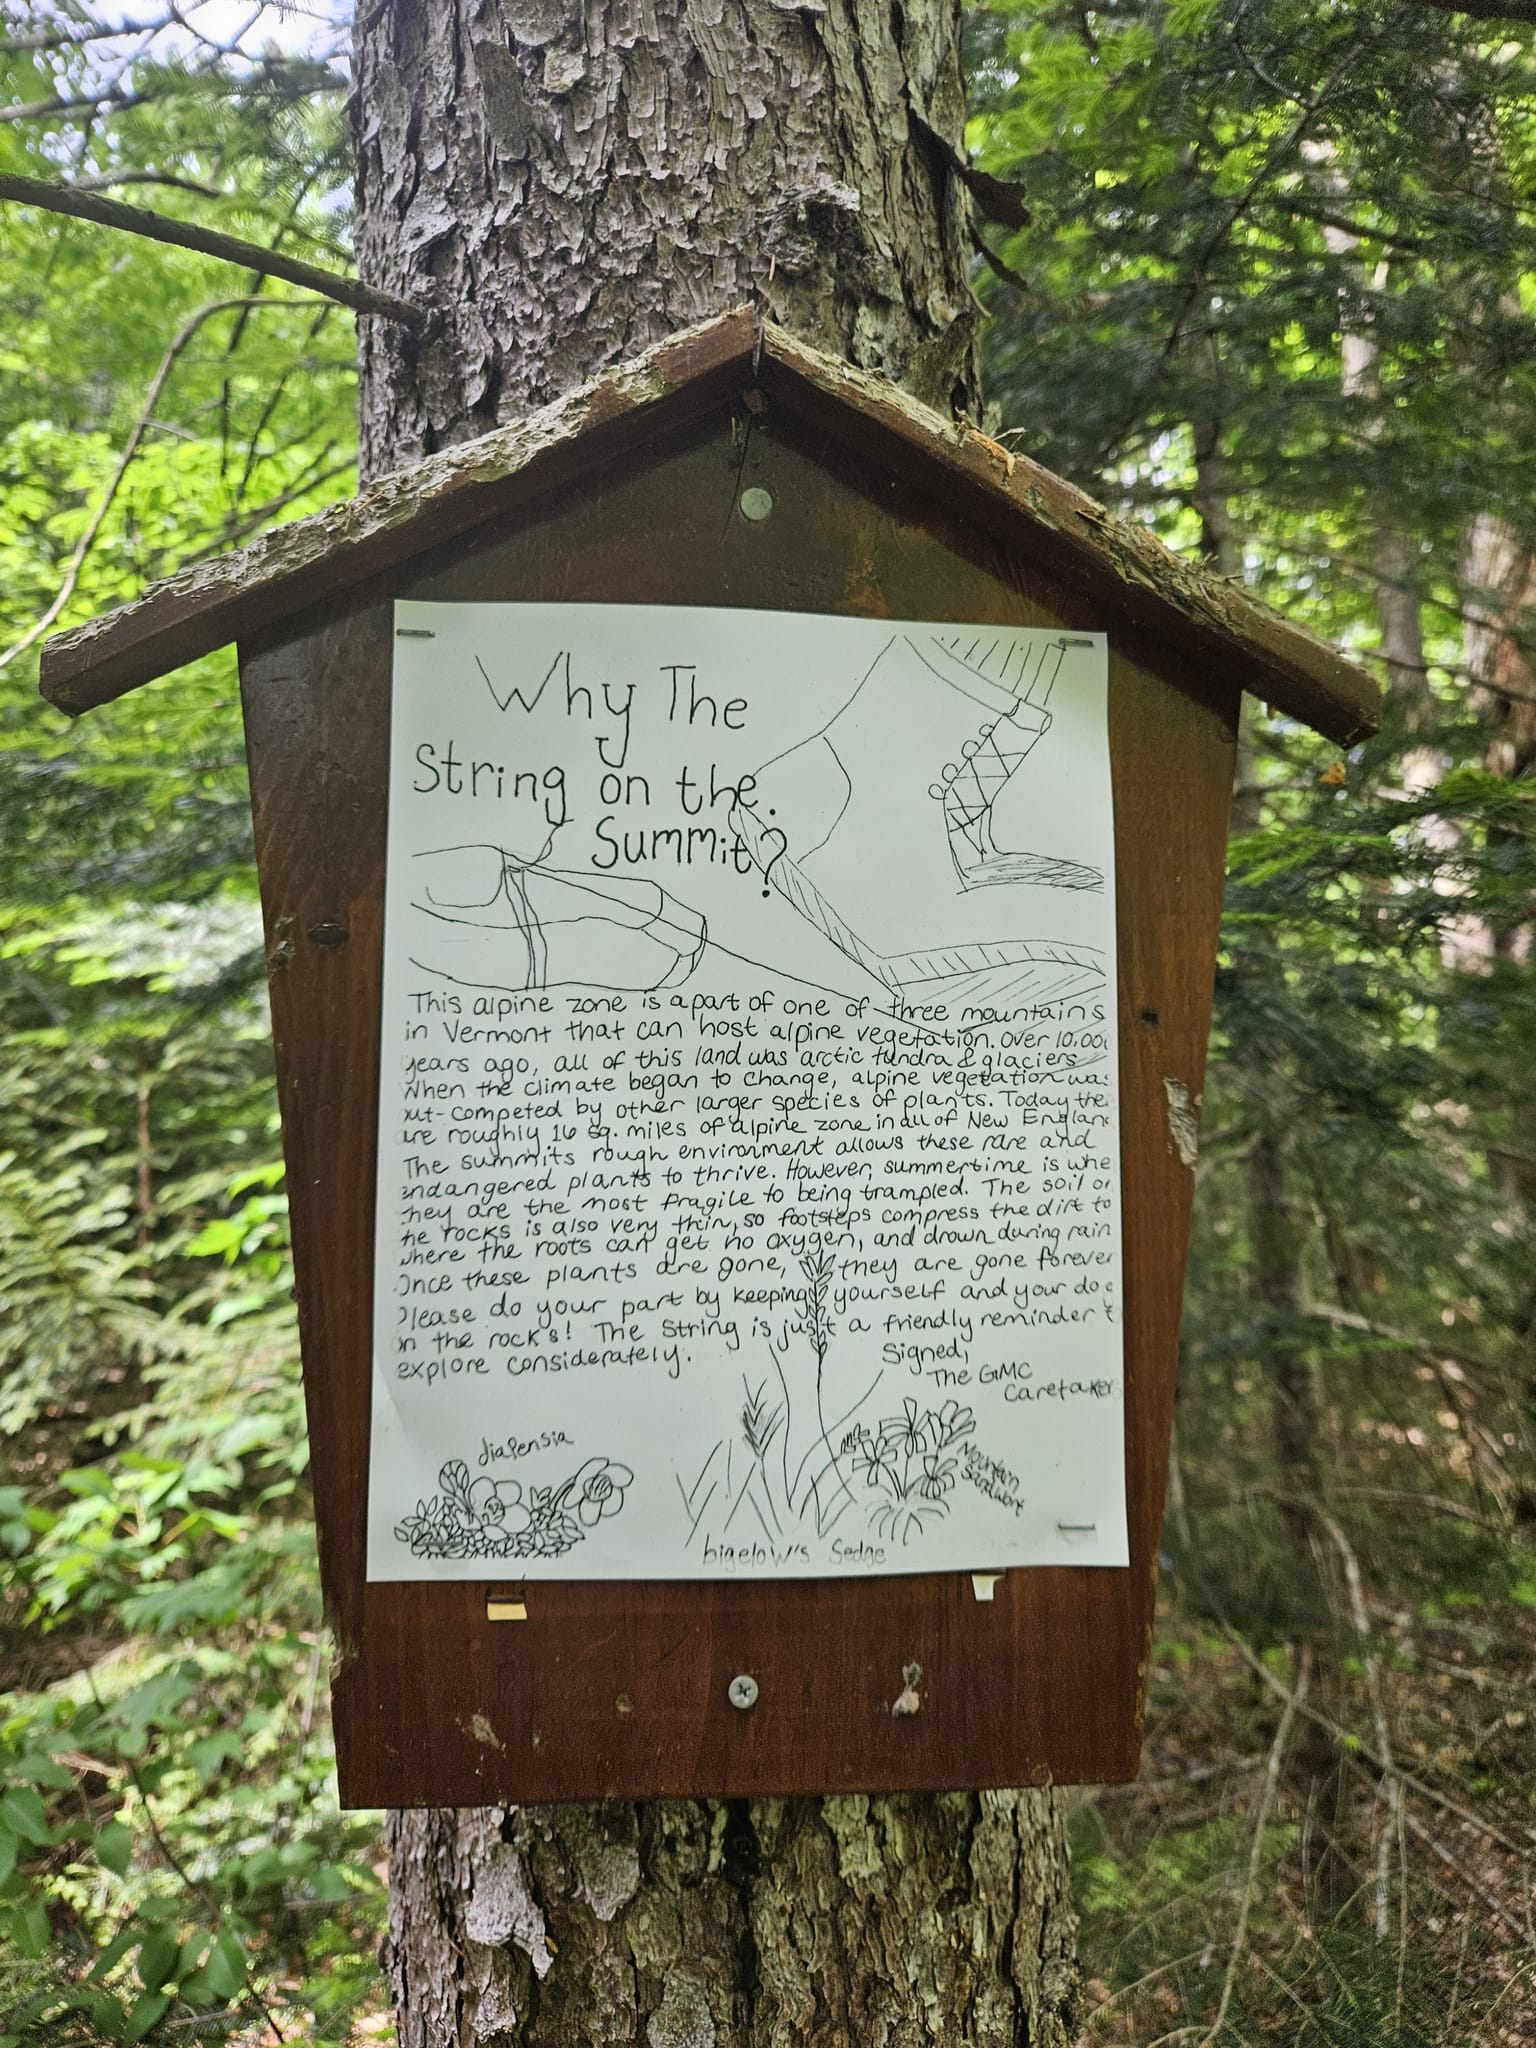 Why The
String on the
Summit?
This alpine zone is a part of one of three mountains
in Vermont that can host alpine vegetation. Over 10,000
years ago, all of this land was arctic tundra & glaciers
When the climate began to change, alpine vegetation was
out-competed by other larger species of plants. Today the
are roughly 16 sq. miles of alpine zone in all of New England
The summits rough environment allows these rare and
endangered plants to thrive. However, summertime is whe
they are the most fragile to being trampled. The soil on
he rocks is also very thin, so footsteps compress the dirt to
where the roots can get no oxygen, and drown during rain
Once these plants are gone, they are gone forever
Please do your part by keeping yourself and your dog
on the rock's! The String is just a friendly reminder t
explore considerately.
Signed,
The GMC
Caretaker
diapensia
Mountain
Sandwort
bigelow's Sedge